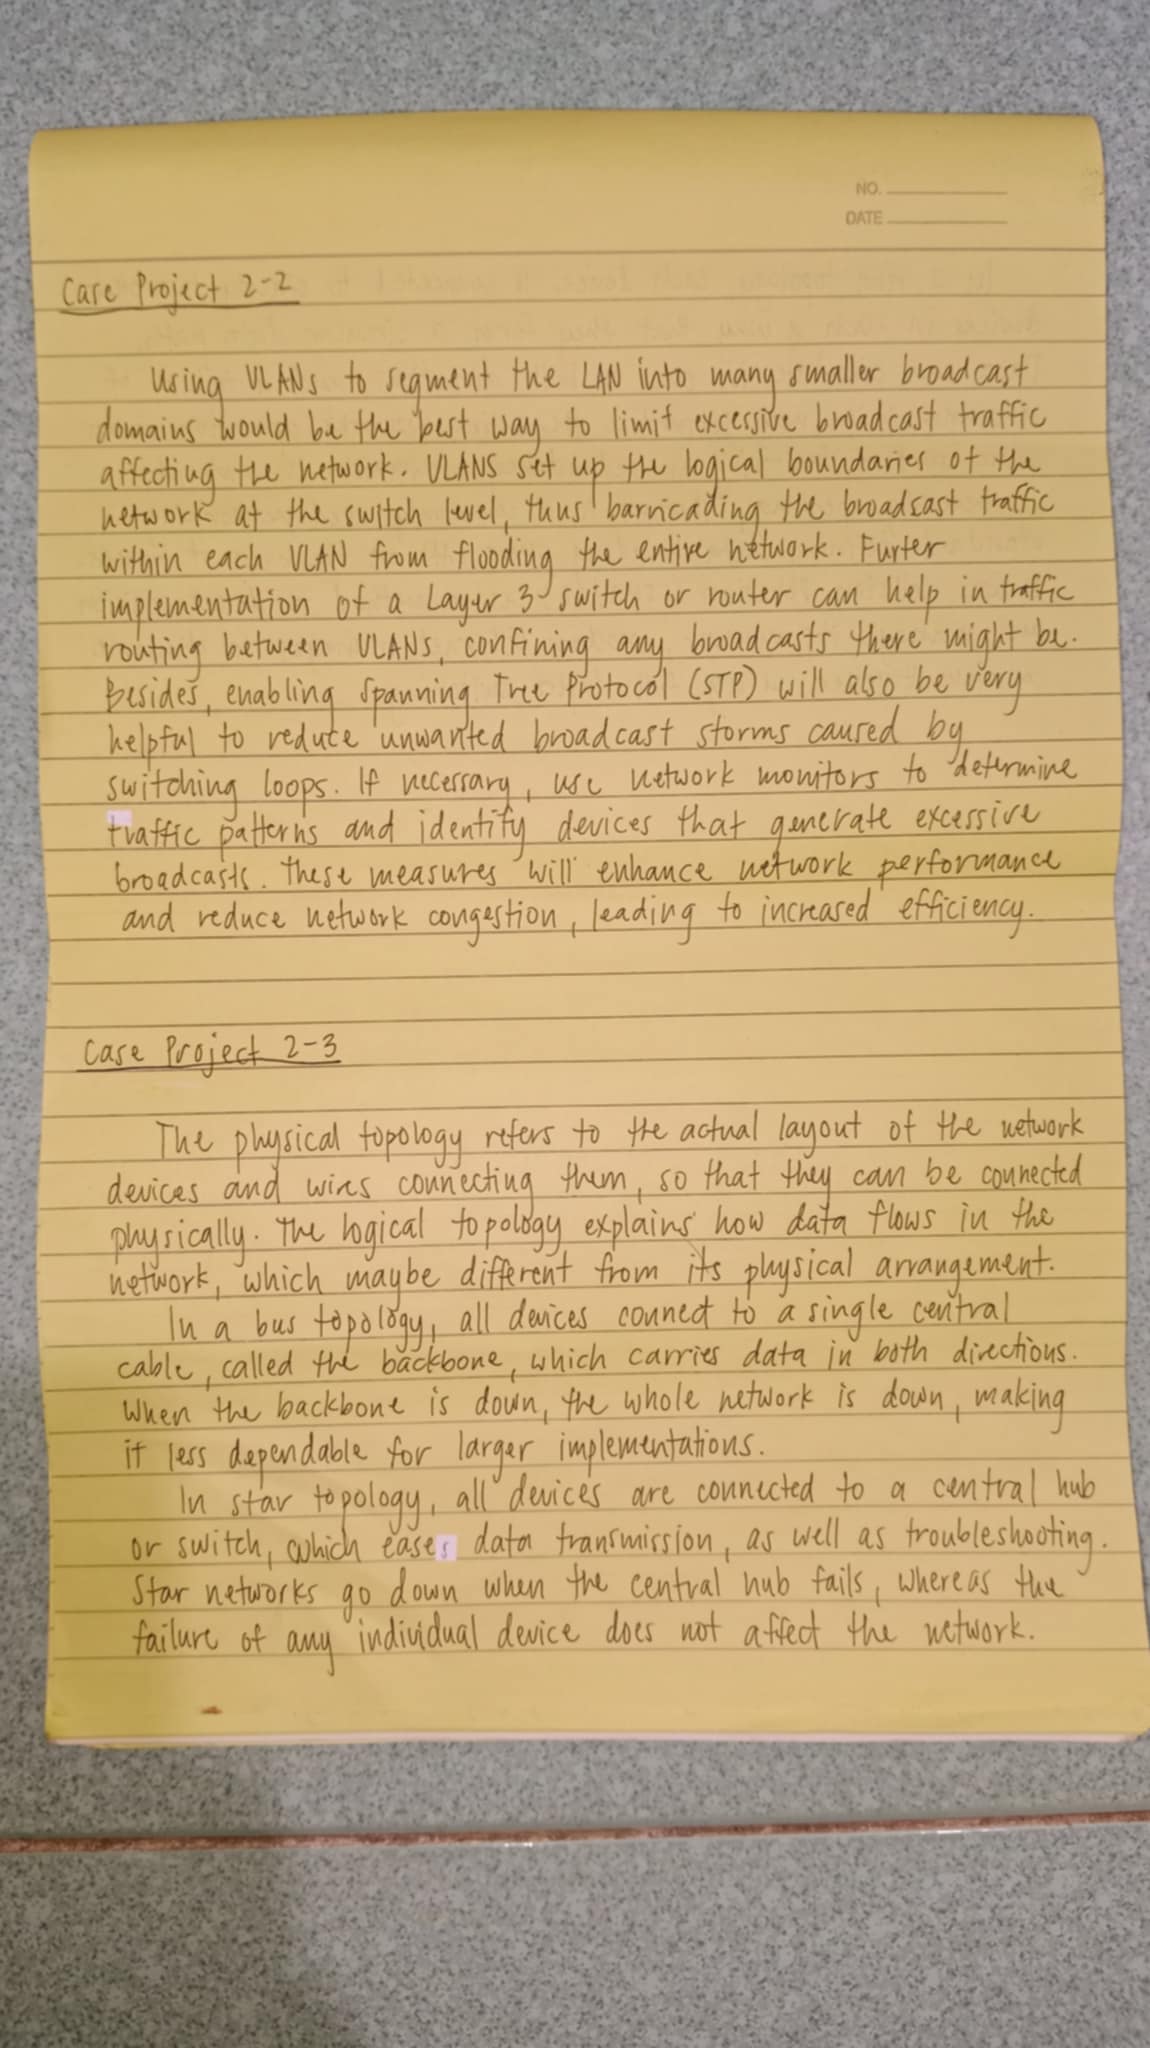 NO.
DATE
Case Project 2-2
Using VLANs to segment the LAN into many smaller broadcast
domains would be the best way to limit excessive broadcast traffic
affecting the network. VLANS set up the logical boundaries of the
network at the switch level, thus barricading the broadcast traffic
within each VLAN from flooding the entire network. Furter
implementation of a Layer 3 switch or router can help in traffic
routing between VLANs, confining any broadcasts there might be.
Besides, enabling Spanning Tree Protocol (STP) will also be very
helpful to reduce unwanted broadcast storms caused by
switching loops. If necessary, use network monitors to determine
traffic patterns and identify devices that generate excessive
broadcasts. These measures will enhance network performance
and reduce network congestion, leading to increased efficiency.
Case Project 2-3
The physical topology refers to the actual layout of the network
devices and wires connecting them, so that they can be connected
physically. The logical topology explains how data flows in the
network, which maybe different from its physical arrangement.
In a bus topology, all devices conned to a single central
cable, called the backbone, which carries data in both directions.
When the backbone is down, the whole network is down, making
it less dependable for larger implementations.
In star topology, all devices are connected to a central hub
or switch, which eases data transmission, as well as troubleshooting.
Star networks go down when the central hub fails, whereas the
failure of any individual device does not affect the network.